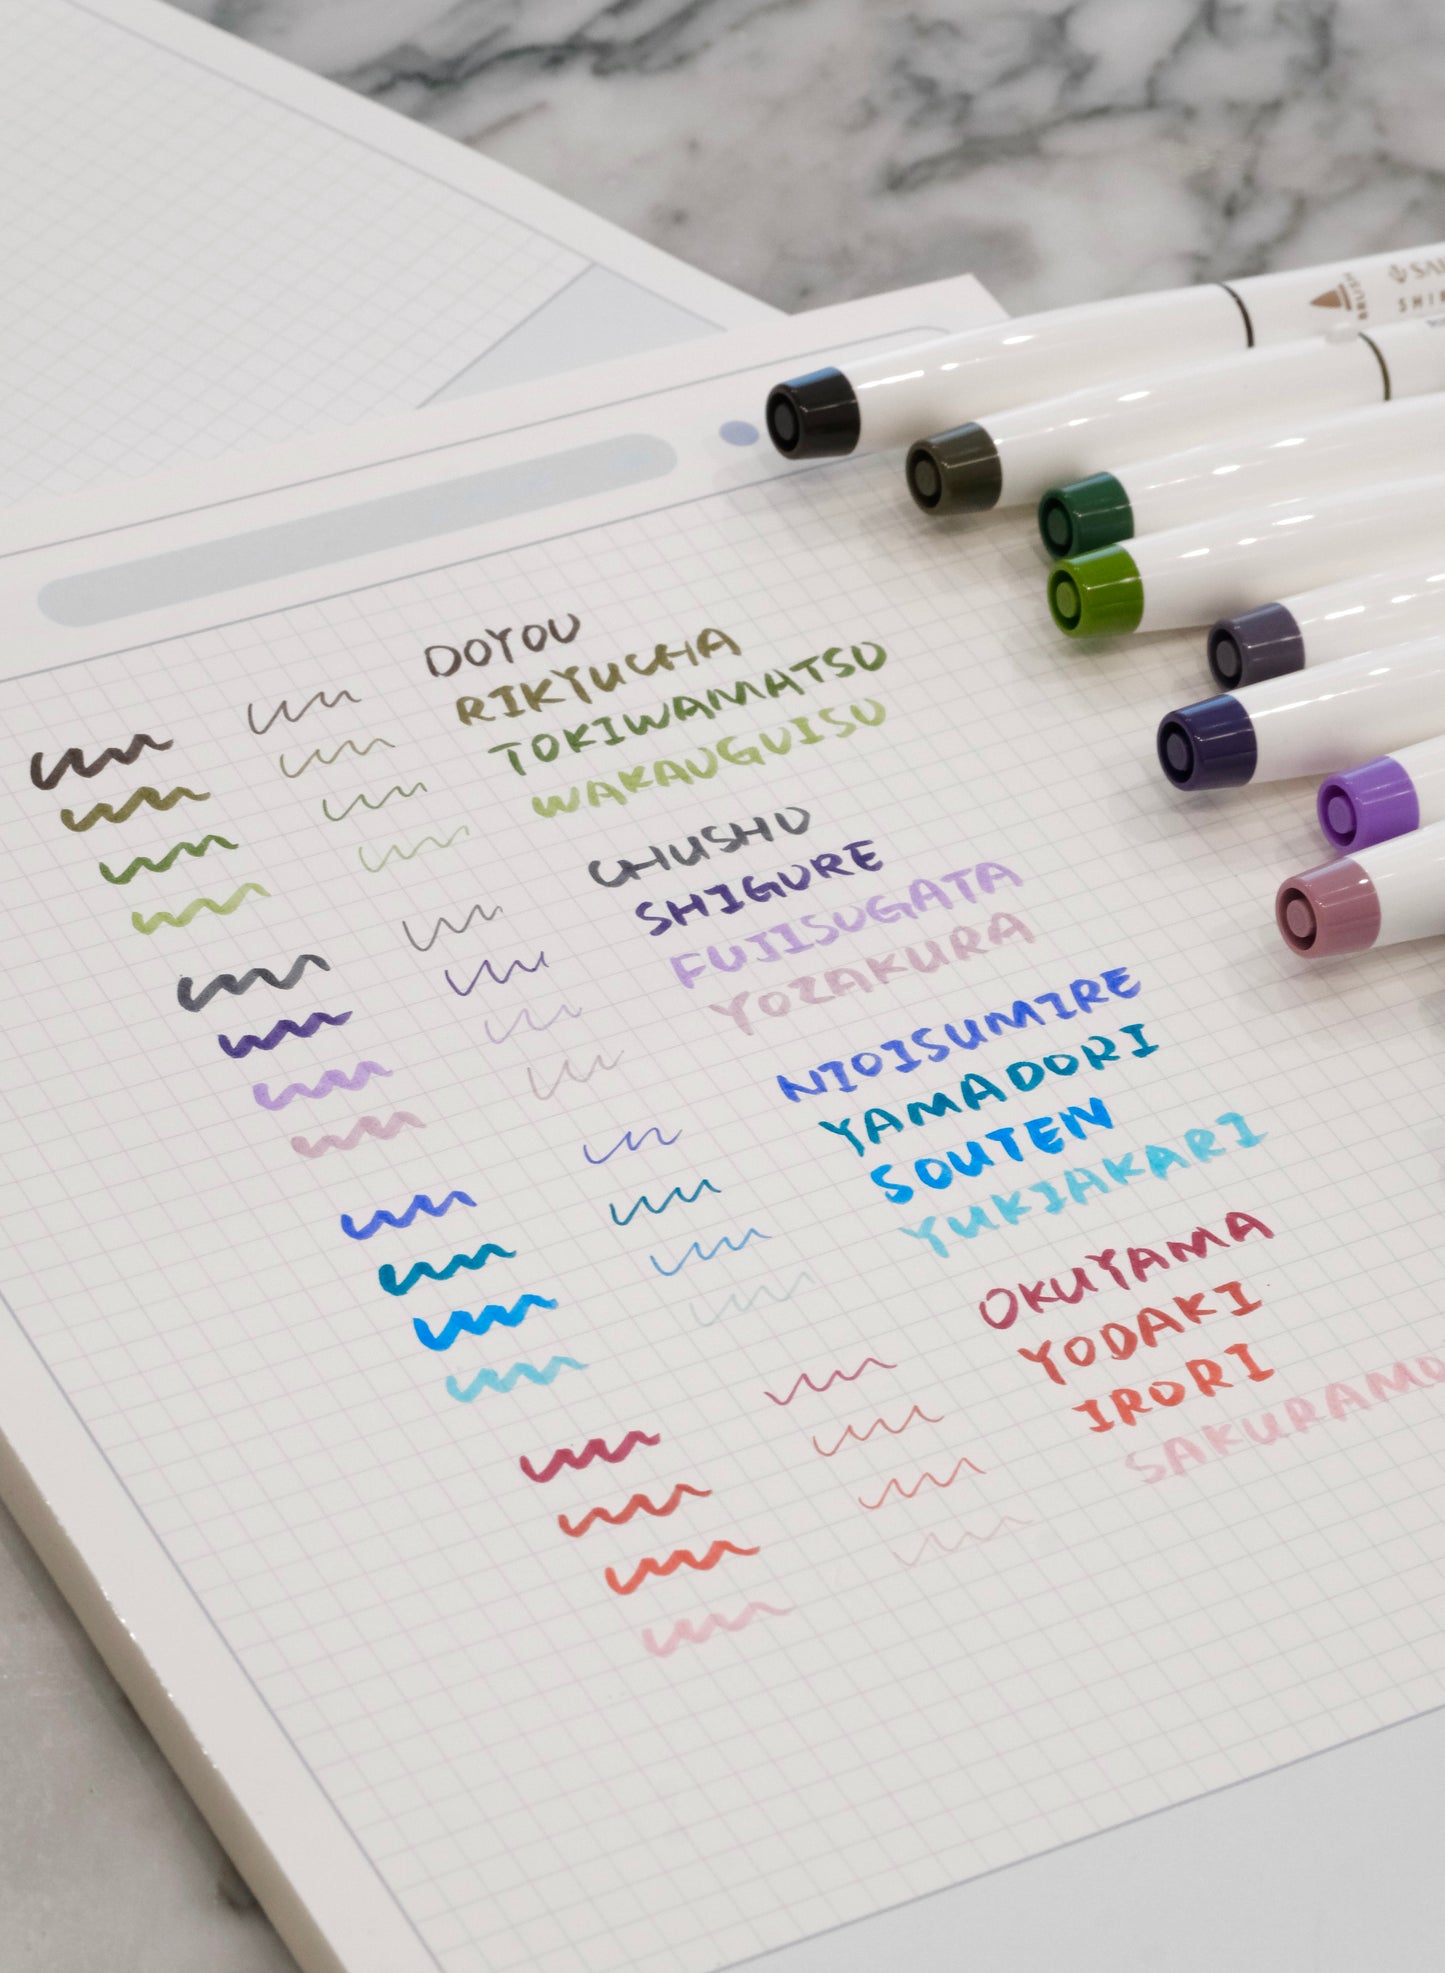 BRUSH
DOYOU
RIKYUCHA
TOKIWAMATSU
WAKAUGUISU
CHUSHU
SHIGURE
FUJISUGATA
YOZAKURA
NIOISUMIRE
YAMADORI
SOUTEN
YUKIAKARI
OKUYAMA
YODAKI
IRORI